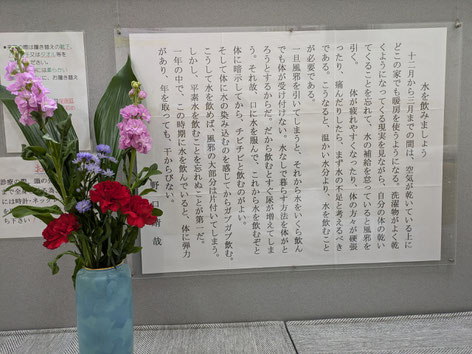 水を飲みましょう
十二月から三月までの間は、空気が乾いている上に
どこの家でも暖房を使うようになる。洗濯物がよく乾
くようになってくる現実を見ながら、自分の体の乾い
てくることを忘れて、水の補給を怠っていると風邪を
引く。　体が疲れやすくなったり、体の方々が硬張
ったり、痛んだりしたら、まず水の不足と考えるべき
である。こうなると、温かい水分より、水を飲むこと
が必要である。
一旦風邪を引いてしまうと、それから水をいくら飲ん
でも体が受け付けない。水なしで暮らす方法を体がと
ろうとするからだ。だから飲むとすぐ尿が増えてしま
う。それ故、口に水を服んで、これから水を飲むぞと
体に暗示してから、チビチビと飲むのがよい。
そして体に水の染み込むのを感じてからガブガブ飲む。
こうして水を飲めば、風邪の大部分は片付いてしまう。
しかし、平素水を飲むことを忘れぬことが第一だ。
一年の中で、この時期に水を飲んでいると、体に弾力
があり、年を取っても、干からびない。
野口晴哉
は履き替えの靴、
等を
ください
お履き替え
の際、
には時計・ネック
ち下さい